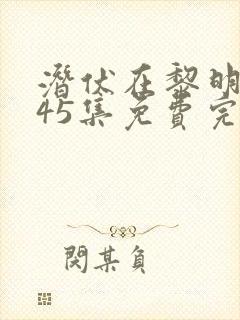 潛伏在黎明
45集免費完
閔某負